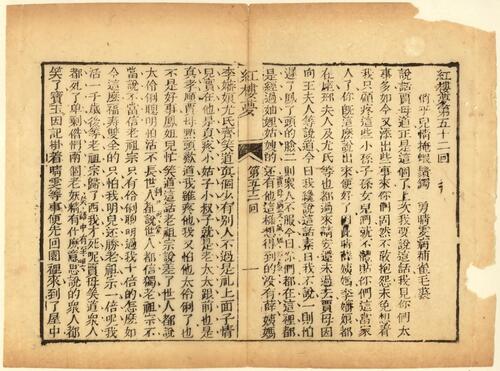 紅樓夢第五十二回
俏平兒情掩蝦鬚鐲　勇晴雯病補雀毛裘
說話賈母道正是這個了上次我要說這話我見你們太
事多如今又添出些事來你們固然不敢抱怨未免想着
我只顧疼這些小孫子孫女兒們就不體貼你們這當家
人了你既這麽說出來便好了因此時薛姨媽李嬸娘都
在座邢夫人及尤氏等也都過來請安還未過去賈母因
向王夫人等說道今日我纔說這話素日我不說一則怕
逞了鳳丫頭的臉二則衆人不服今日你們都在這裡都
是經過妯娌姑嫂的還有他這樣想得到的沒有薛姨媽
紅樓夢　第五二回　一
李嬸娘尤氏齊笑道真個少有別人不過是禮上面子情
兒實在他是真疼小姑子小叔子就是老太太跟前也是
真孝順賈母點頭歎道我雖疼他我又怕他太伶俐了也
不是好事鳳姐兒忙笑道這話老祖宗說差了世人都說
太伶俐聰明怕活不長世人都說世人都信獨老祖宗不
當說不當信老祖宗只有伶俐聰明過我十倍的怎麽如
今這麽福壽雙全的只怕我明兒還勝老祖宗一倍呢我
活一千歲後等老祖宗歸了西我才死呢賈母笑道衆人
都死了單剩偺們兩個老妖精有什麽意思說的衆人都
笑了寶玉因記掛着晴雯等事便先回園裡來到了屋中